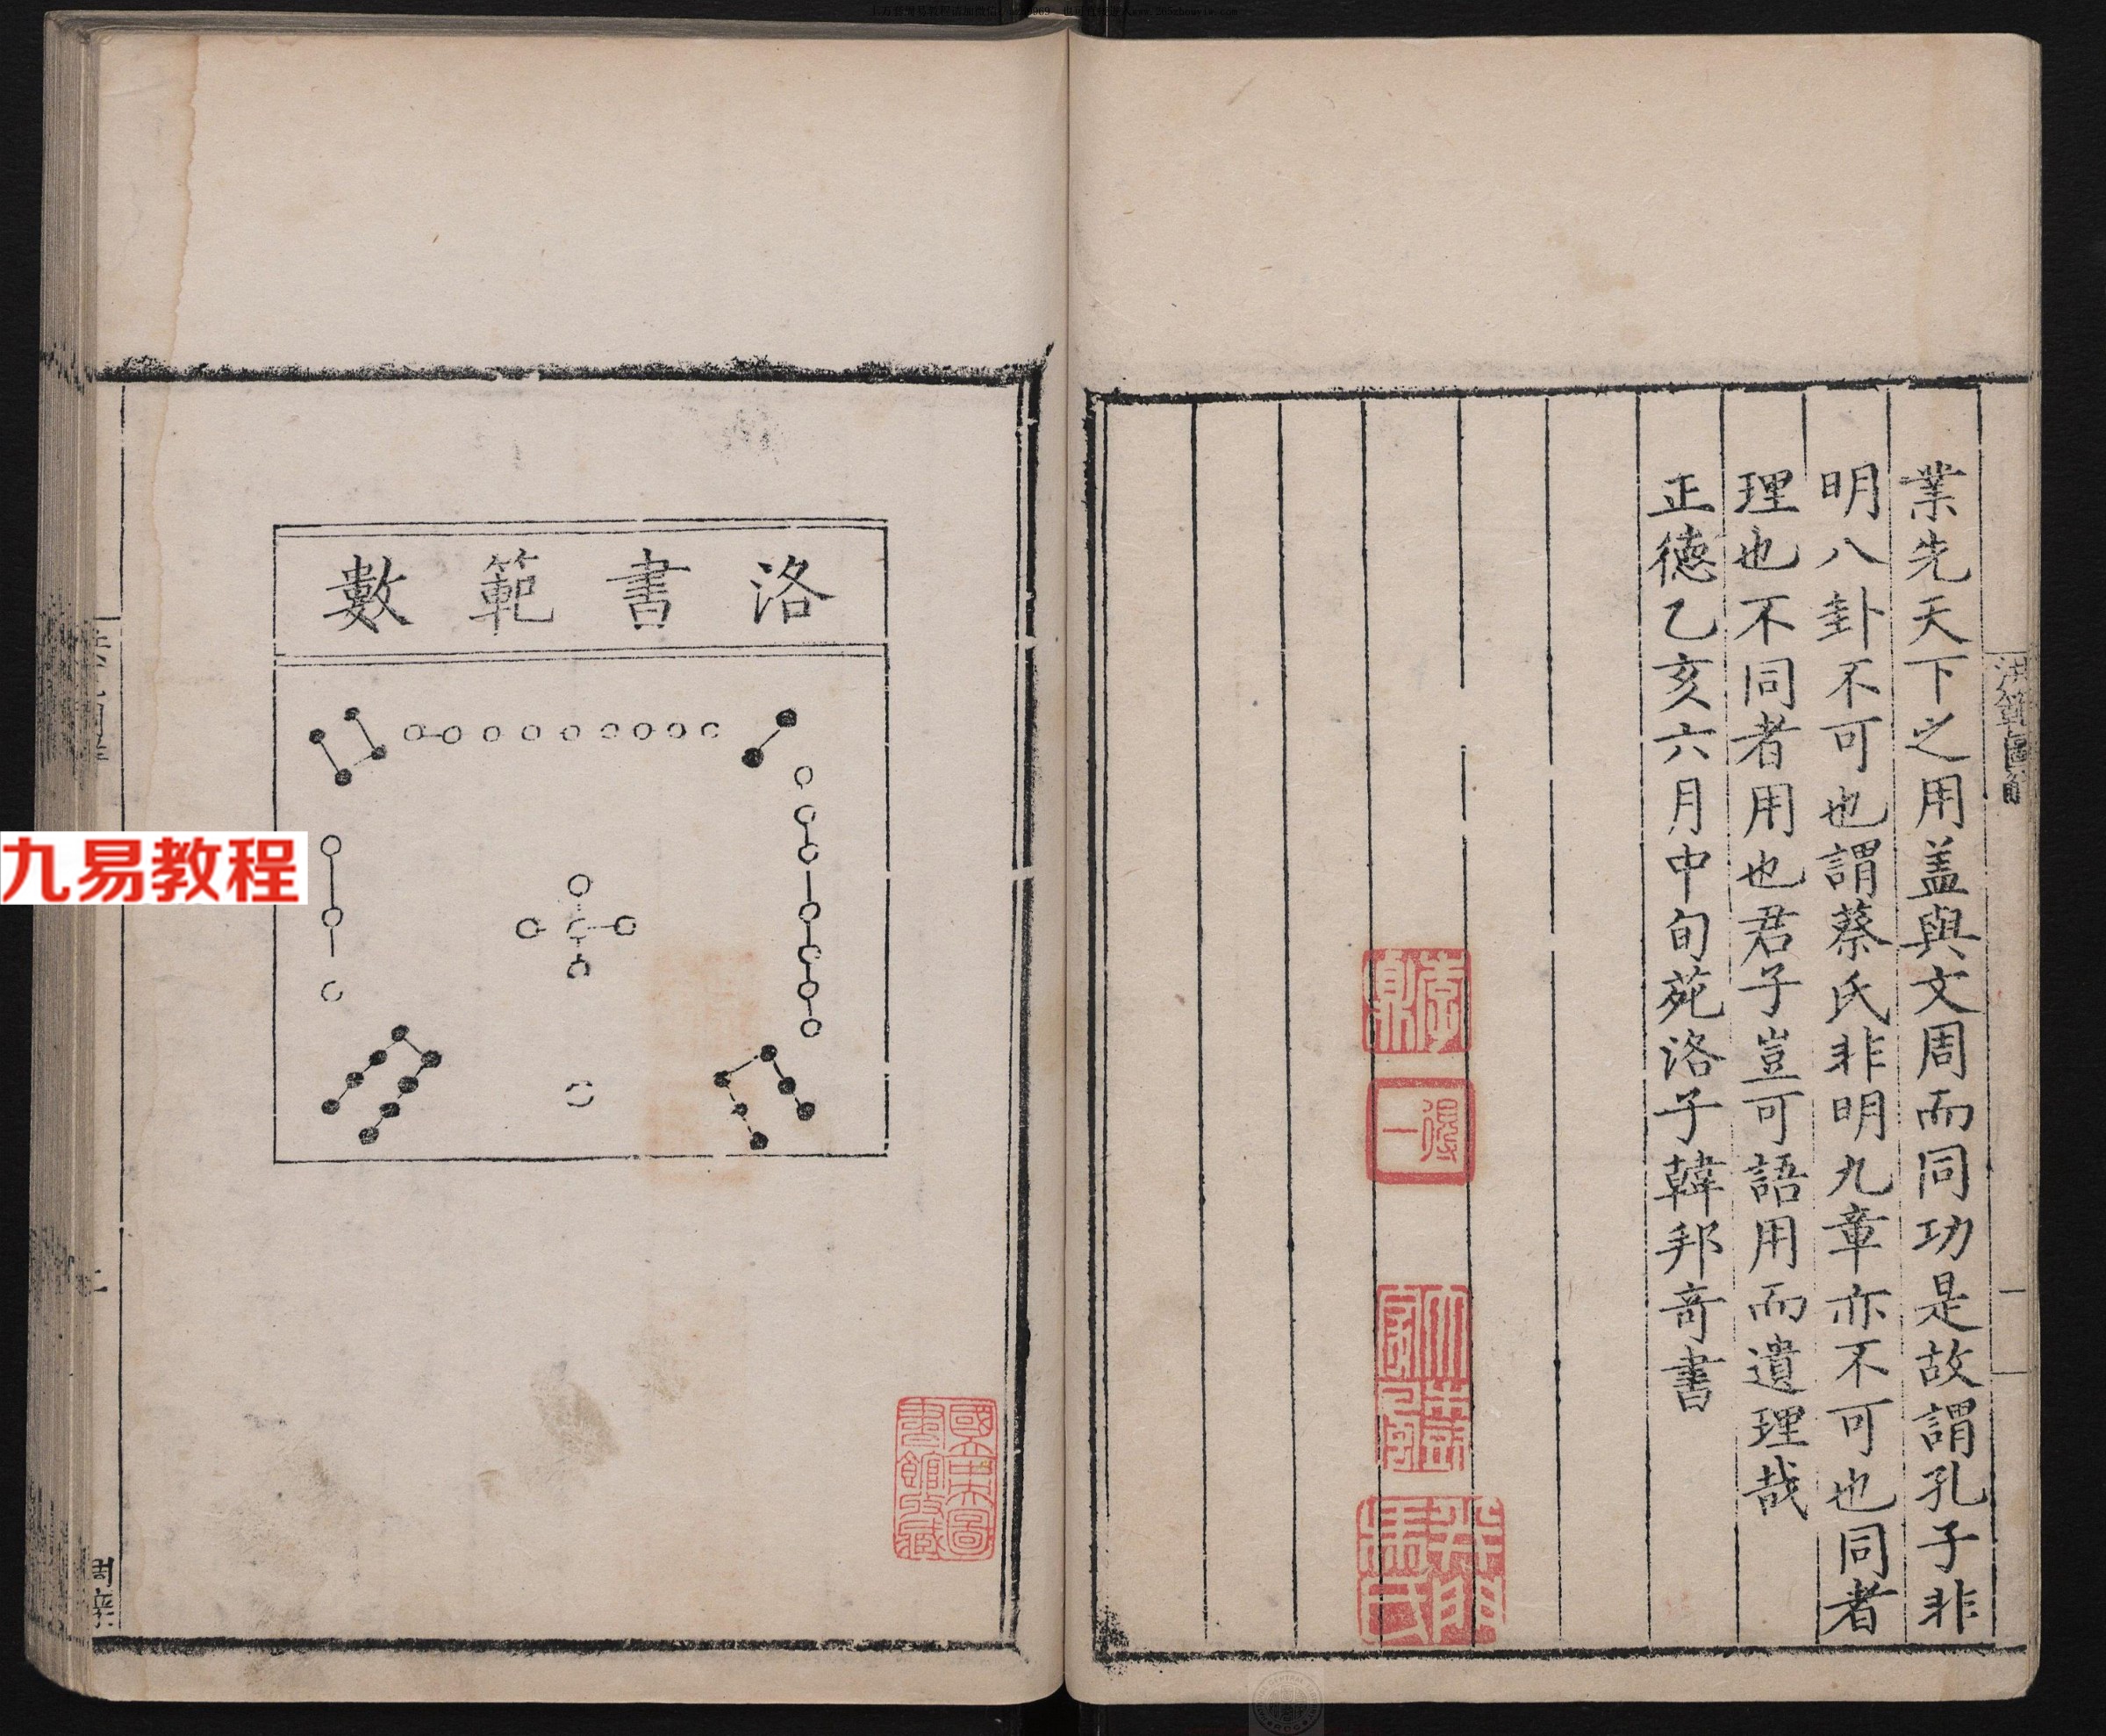 業先天下之用盖與文周而同功是故謂孔子非
明八卦不可也謂蔡氏非明九章亦不可也同者
理也不同者用也君子豈可語用而遺理哉
正德乙亥六月中旬苑洛子韓邦奇書
洛書範數
國立中央圖書館收藏
九易教程